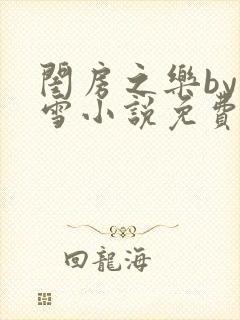 閨房之樂by
雪小說免費
回龍海